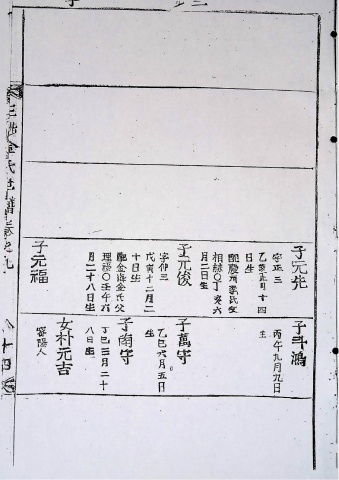 子元先
字正三
乙亥正月十四
日生
配慶州李氏父
相赫〇丁亥六
月二日生
子元俊
字仲三
戊寅十二月二
十日生
配金海金氏父
理福〇壬午六
月二十八日生
子元福
子斗鴻
丙午九月九日
生
子萬守
乙巳六月五日
生
子南守
丁巳三月二十
八日生
女朴元吉
密陽人
金氏世譜卷之九
八十四